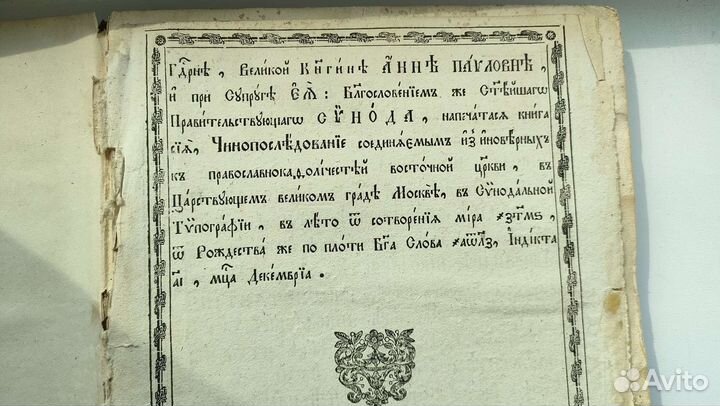 Гдⷭ҇рнѣ , Великой Кнѧ҃гинѣ А҆ннѣ Паѵловнѣ ,
и҆ при Сꙋпрꙋгѣ Е҆ѧ̀ : Блгⷭ҇ословенїемъ же Ст҃ѣйшагѡ
Правительствꙋющагѡ СѴ҇НОДА , напечатасѧ книга
сїѧ̀ , Чинопослѣдованїе соединѧемымъ и҆з̾ и҆новѣрныхъ
къ православнокаѳолїчестѣй восточной цр҃кви , въ
Царствꙋющемъ великомъ градѣ Москвѣ , въ Сѵнодальной
Тѵпографїи , въ лѣто ѿ сотворенїѧ мїра ҂зт҃мѕ ,
ѿ Рождества̀ же по плоти Бг҃а Слова ҂аѡл҃з , І҆ндїкта
а҃і , мцⷭ҇а Декемврїа .
Avito